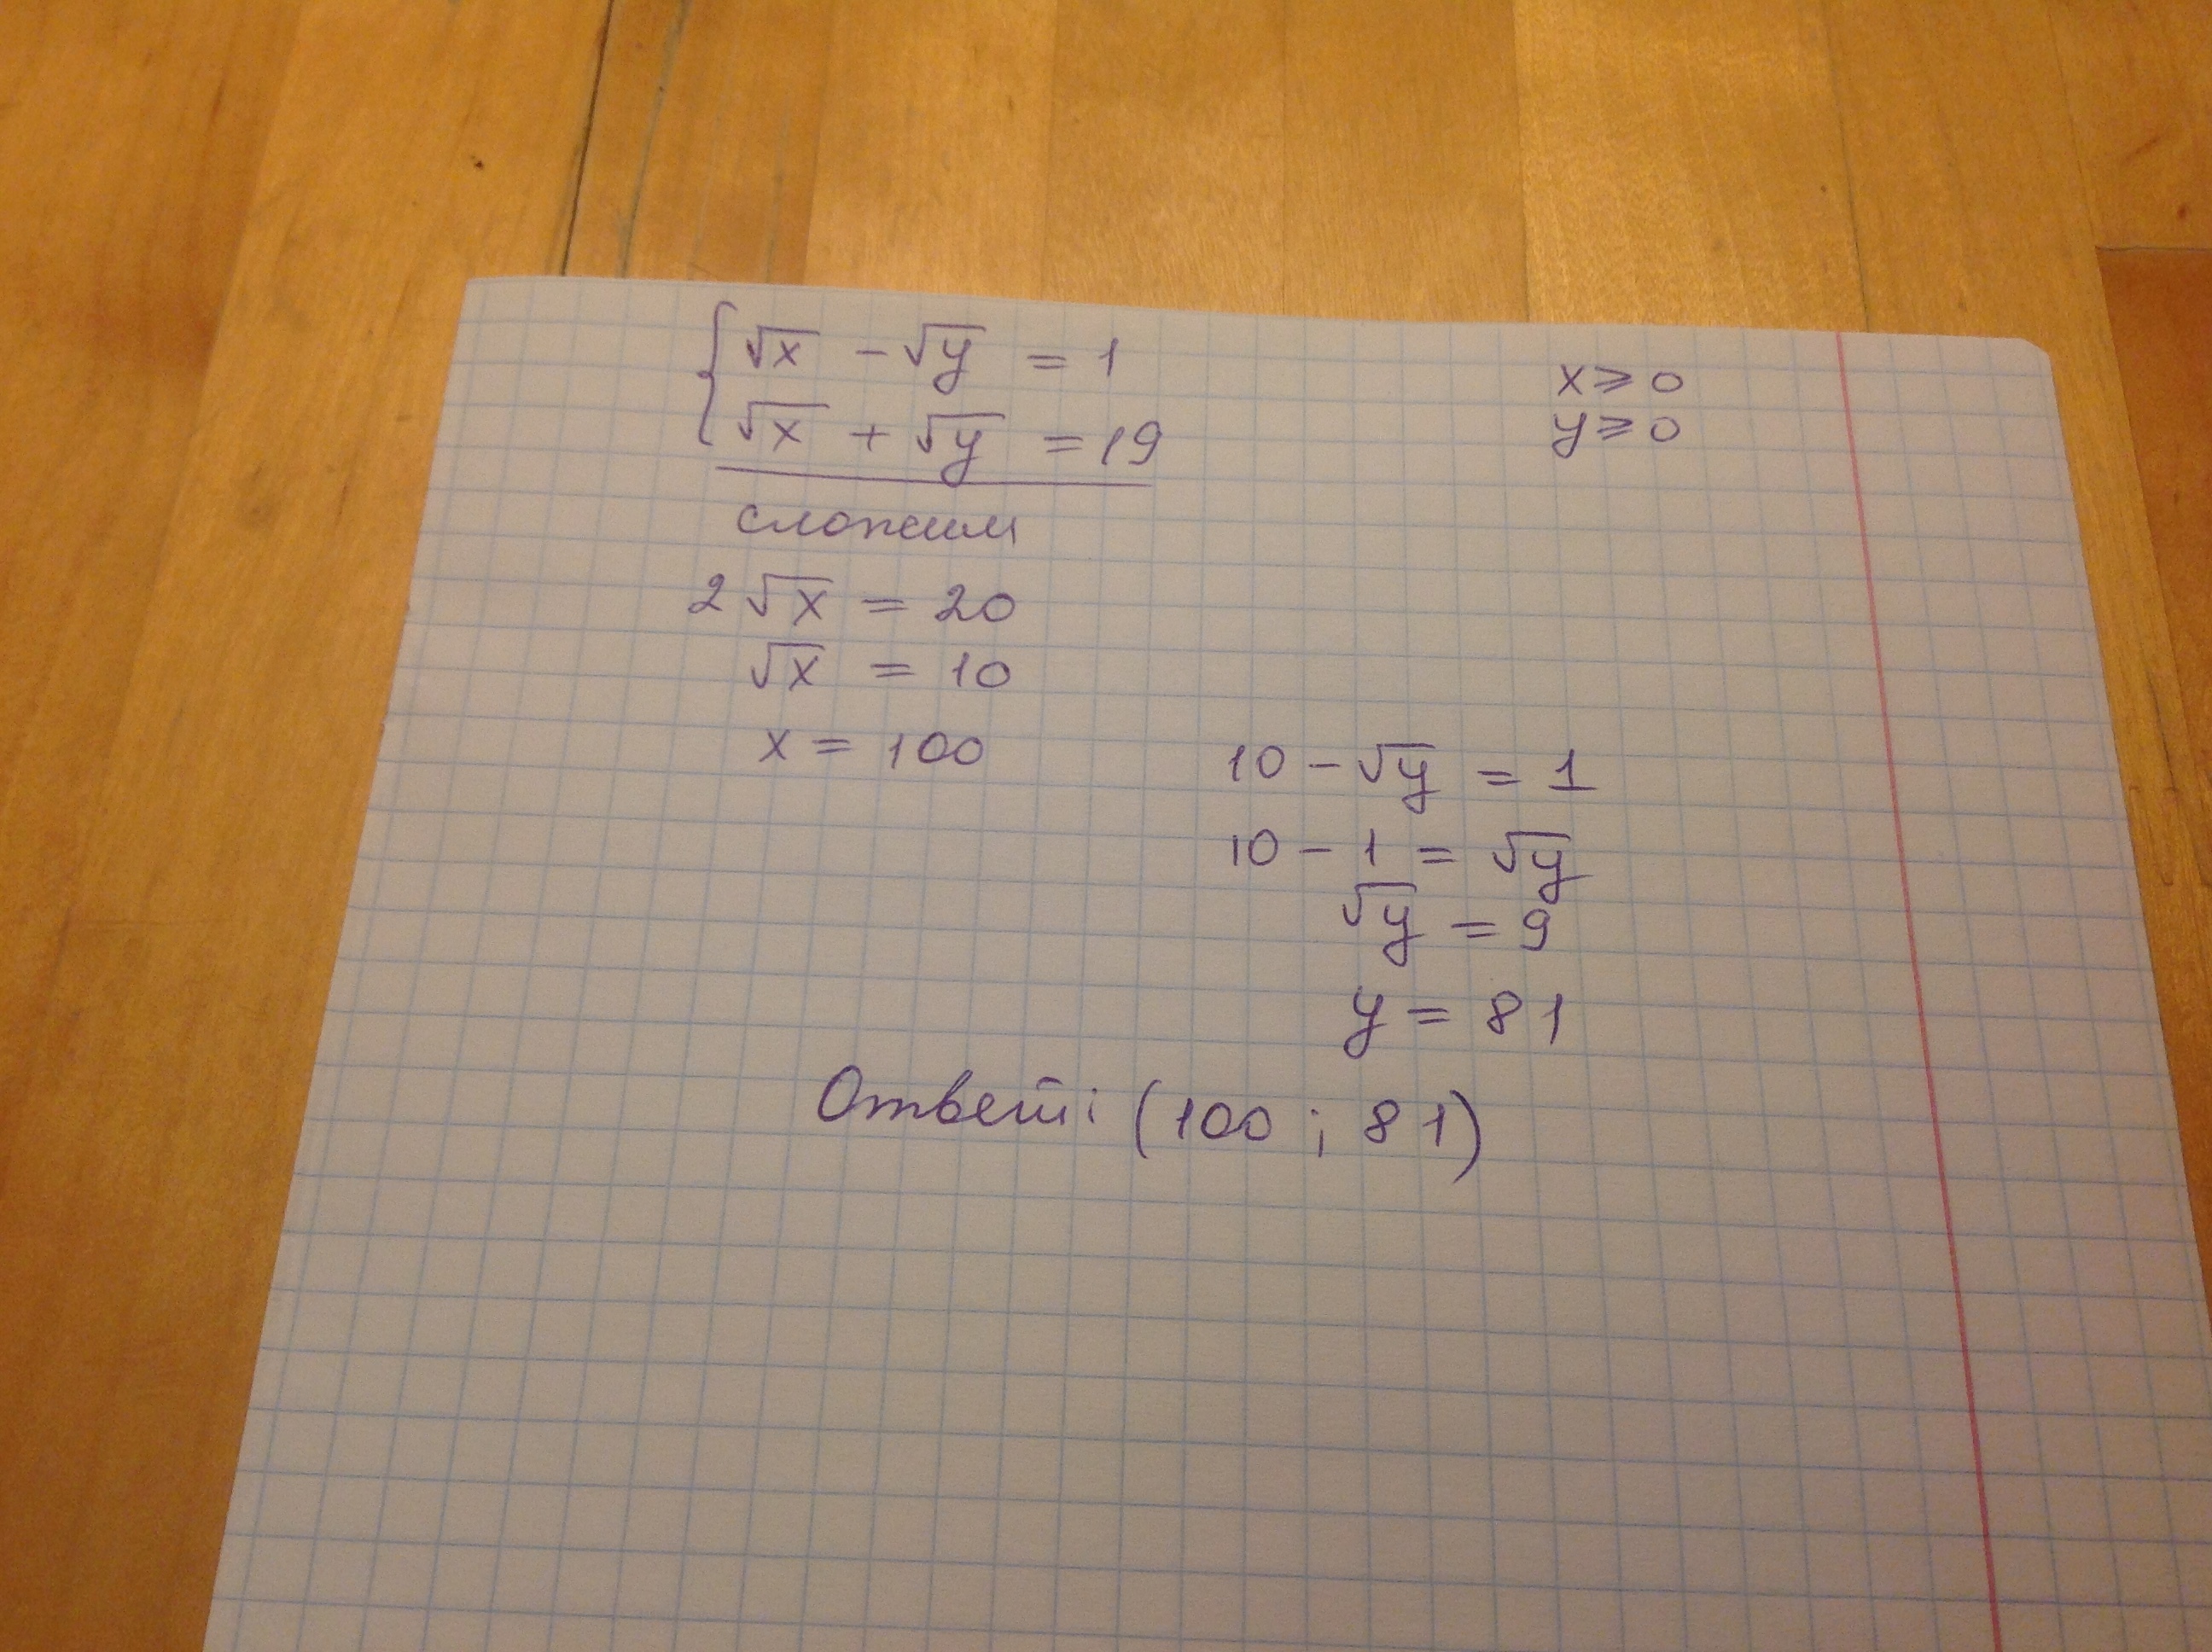 { √x − √y = 1
√x + √y = 19
x ⩾ 0
y ⩾ 0
сложим
2√x = 20
√x = 10
x = 100
10 − √y = 1
10 − 1 = √y
√y = 9
y = 81
Ответ: (100 ; 81)